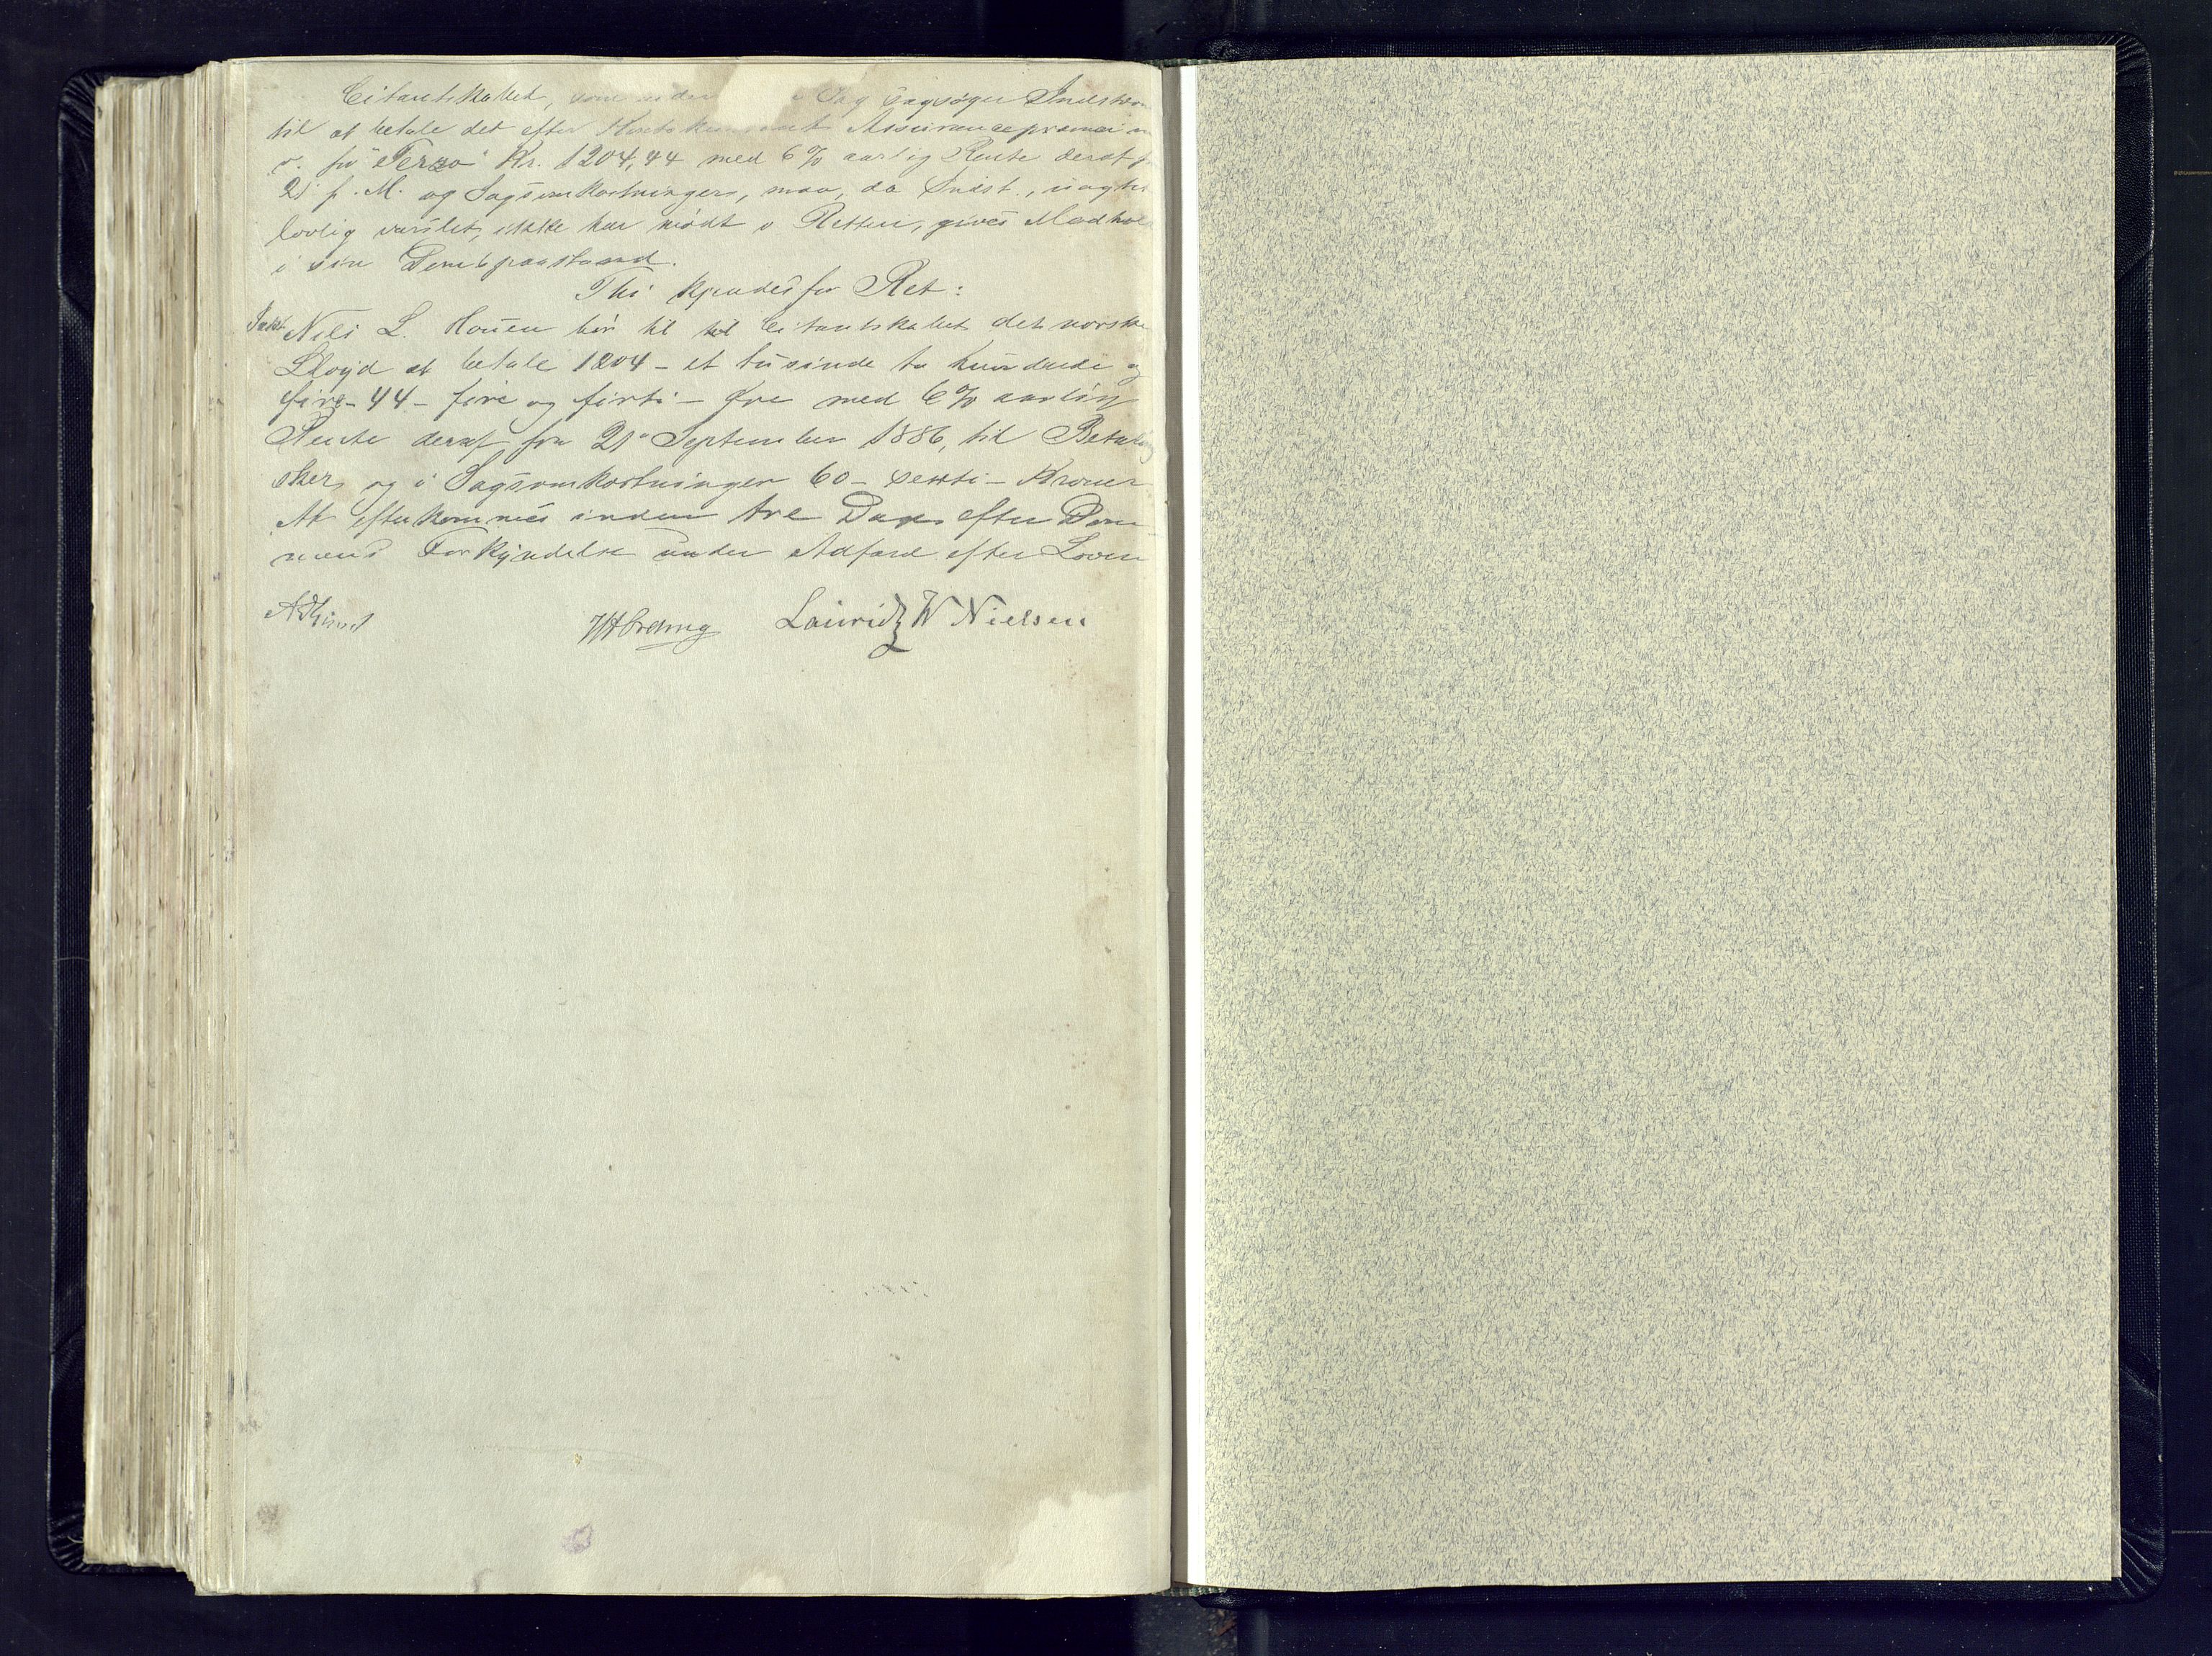 Citantskabet, som under Sag sagsøger Indst
til at betale det efter Assurancepræmi
for "Terzo" Kr. 1204,44 med 6% aarlig Rente deraf f
21. f. M. og Sagsomkostninger, maa, da Indst., uagte
lovlig varslet, ikke har mødt i Retten, gives Medhol
i sin Domspaastand.
Thi kjendes for Ret:
Indst. Nils L. Houen bør til til Citantskabet det norske
Lloyd at betale 1204 – et tusinde to hundrede og
fire – 44 – fire og firti – Øre med 6% aarlig
Rente deraf fra 21 September 1886, til Betaling
sker, og i Sagsomkostninger 60 – sexti – Kroner
At efterkommes inden tre Dage efter Dom
mens Forkyndelse under Adfærd efter Loven
Lauridz W Nielsen